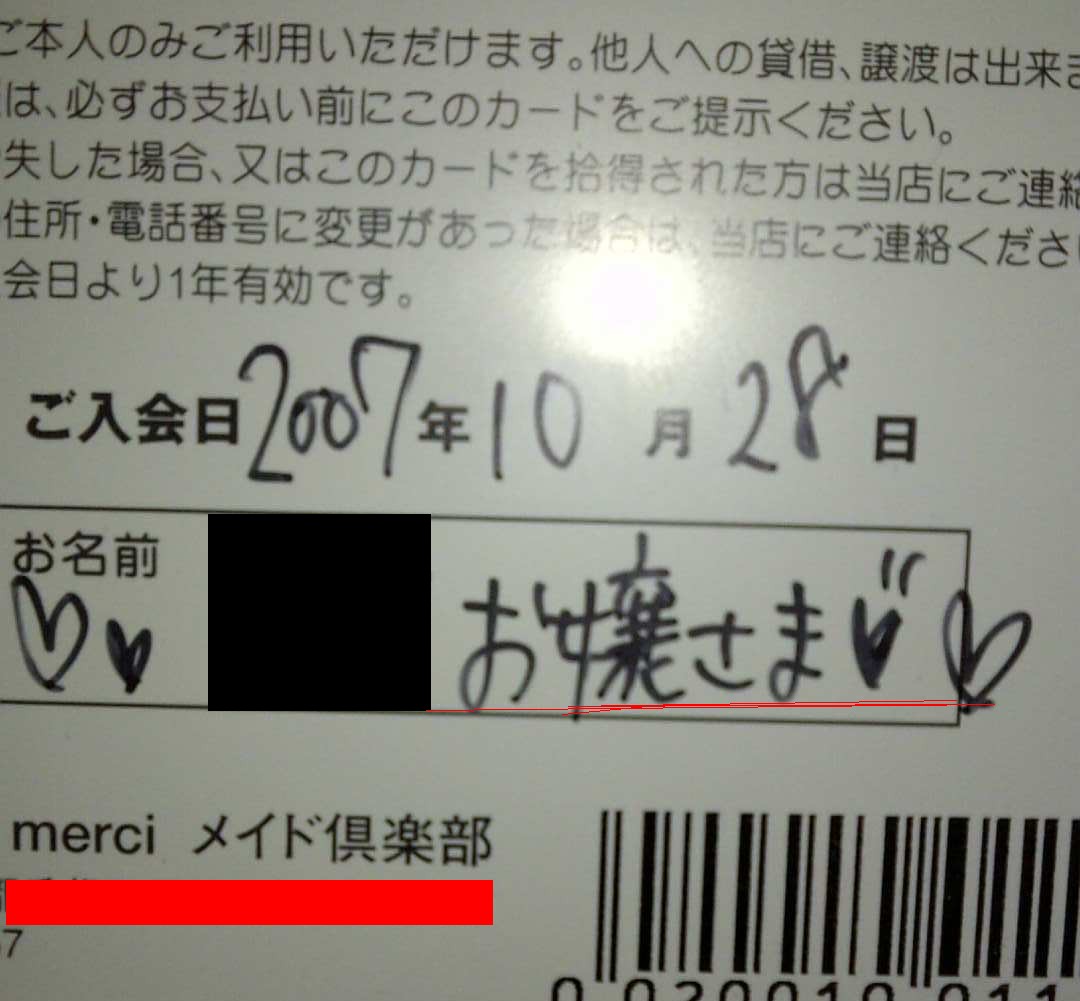 ご本人のみご利用いただけます。他人への貸借、譲渡は出来ま
は、必ずお支払い前にこのカードをご提示ください。
失した場合、又はこのカードを拾得された方は当店にご連絡
住所・電話番号に変更があった場合は、当店にご連絡ください
会日より1年有効です。
ご入会日2007年10月28日
お名前
♡♥ お嬢さま♥〃♡
merci メイド倶楽部
7
0 020010 011